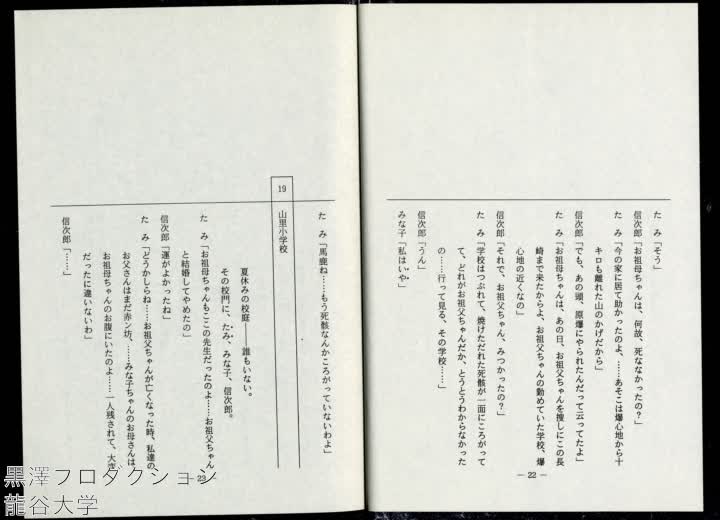 たみ「そう」
信次郎「お祖母ちゃんは、何故、死ななかったの？」
たみ「今の家に居て助かったのよ、……あそこは爆心地から十
キロも離れた山のかげだから」
信次郎「でも、あの頭、原爆にやられたんだって云ってたよ」
たみ「お祖母ちゃんは、あの日、お祖父ちゃんを捜しにこの長
崎まで来たからよ、お祖父ちゃんの勤めていた学校、爆
心地の近くなの」
信次郎「それで、お祖父ちゃん、みつかったの？」
たみ「学校はつぶれて、焼けただれた死骸が一面にころがって
て、どれがお祖父ちゃんだか、とうとうわからなかった
の……行って見る、その学校……」
信次郎「うん」
みな子「私はいや」
— 22 —
たみ「馬鹿ね……もう死骸なんかころがっていないわよ」
19
山里小学校
夏休みの校庭――誰もいない。
その校門に、たみ、みな子、信次郎。
たみ「お祖母ちゃんもここの先生だったのよ……お祖父ちゃん
と結婚してやめたの」
信次郎「運がよかったね」
たみ「どうかしらね……お祖父ちゃんが亡くなった時、私達の
お父さんはまだ赤ン坊、……みな子ちゃんのお母さんは
お祖母ちゃんのお腹にいたのよ……一人残されて、大変
だったに違いないわ」
信次郎「……」
23
黒澤プロダクション
龍谷大学